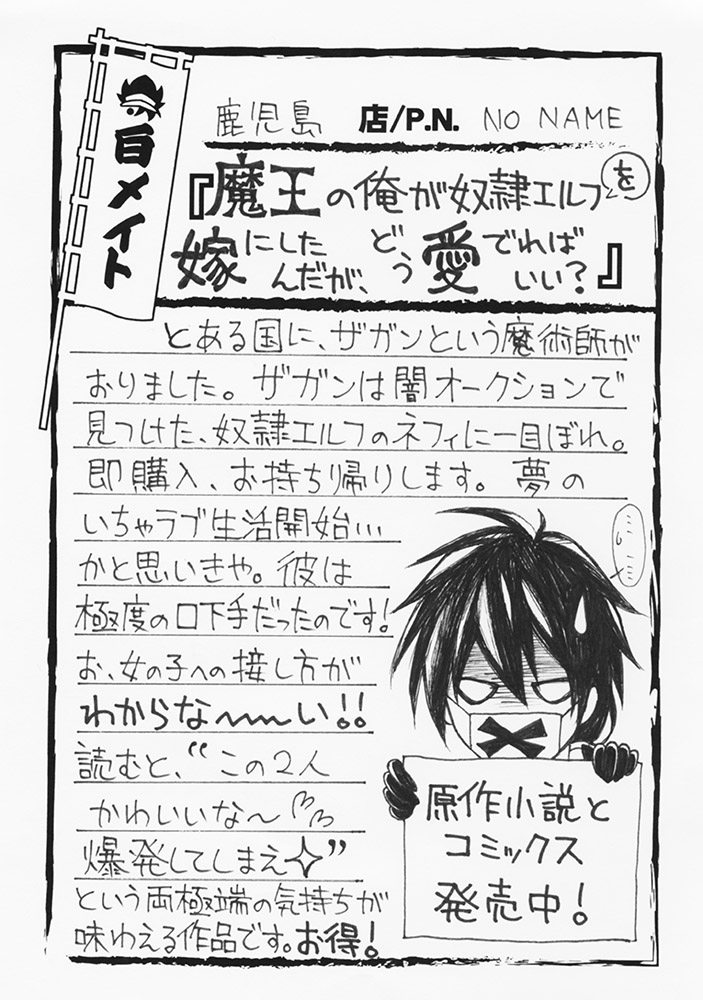 白メイト
鹿児島 店/P.N. NO NAME
『魔王の俺が奴隷エルフを
嫁にしたんだが、どう愛でればいい?』
とある国に、ザガンという魔術師が
おりました。ザガンは闇オークションで
見つけた、奴隷エルフのネフィに一目ぼれ。
即購入、お持ち帰りします。夢の
いちゃラブ生活開始…
かと思いきや。彼は
極度の口下手だったのです!
お、女の子への接し方が
わからな〜〜い!!
読むと、“この2人
かわいいな〜
爆発してしまえ✧”
という両極端の気持ちが
味わえる作品です。お得!
原作小説と
コミックス
発売中!